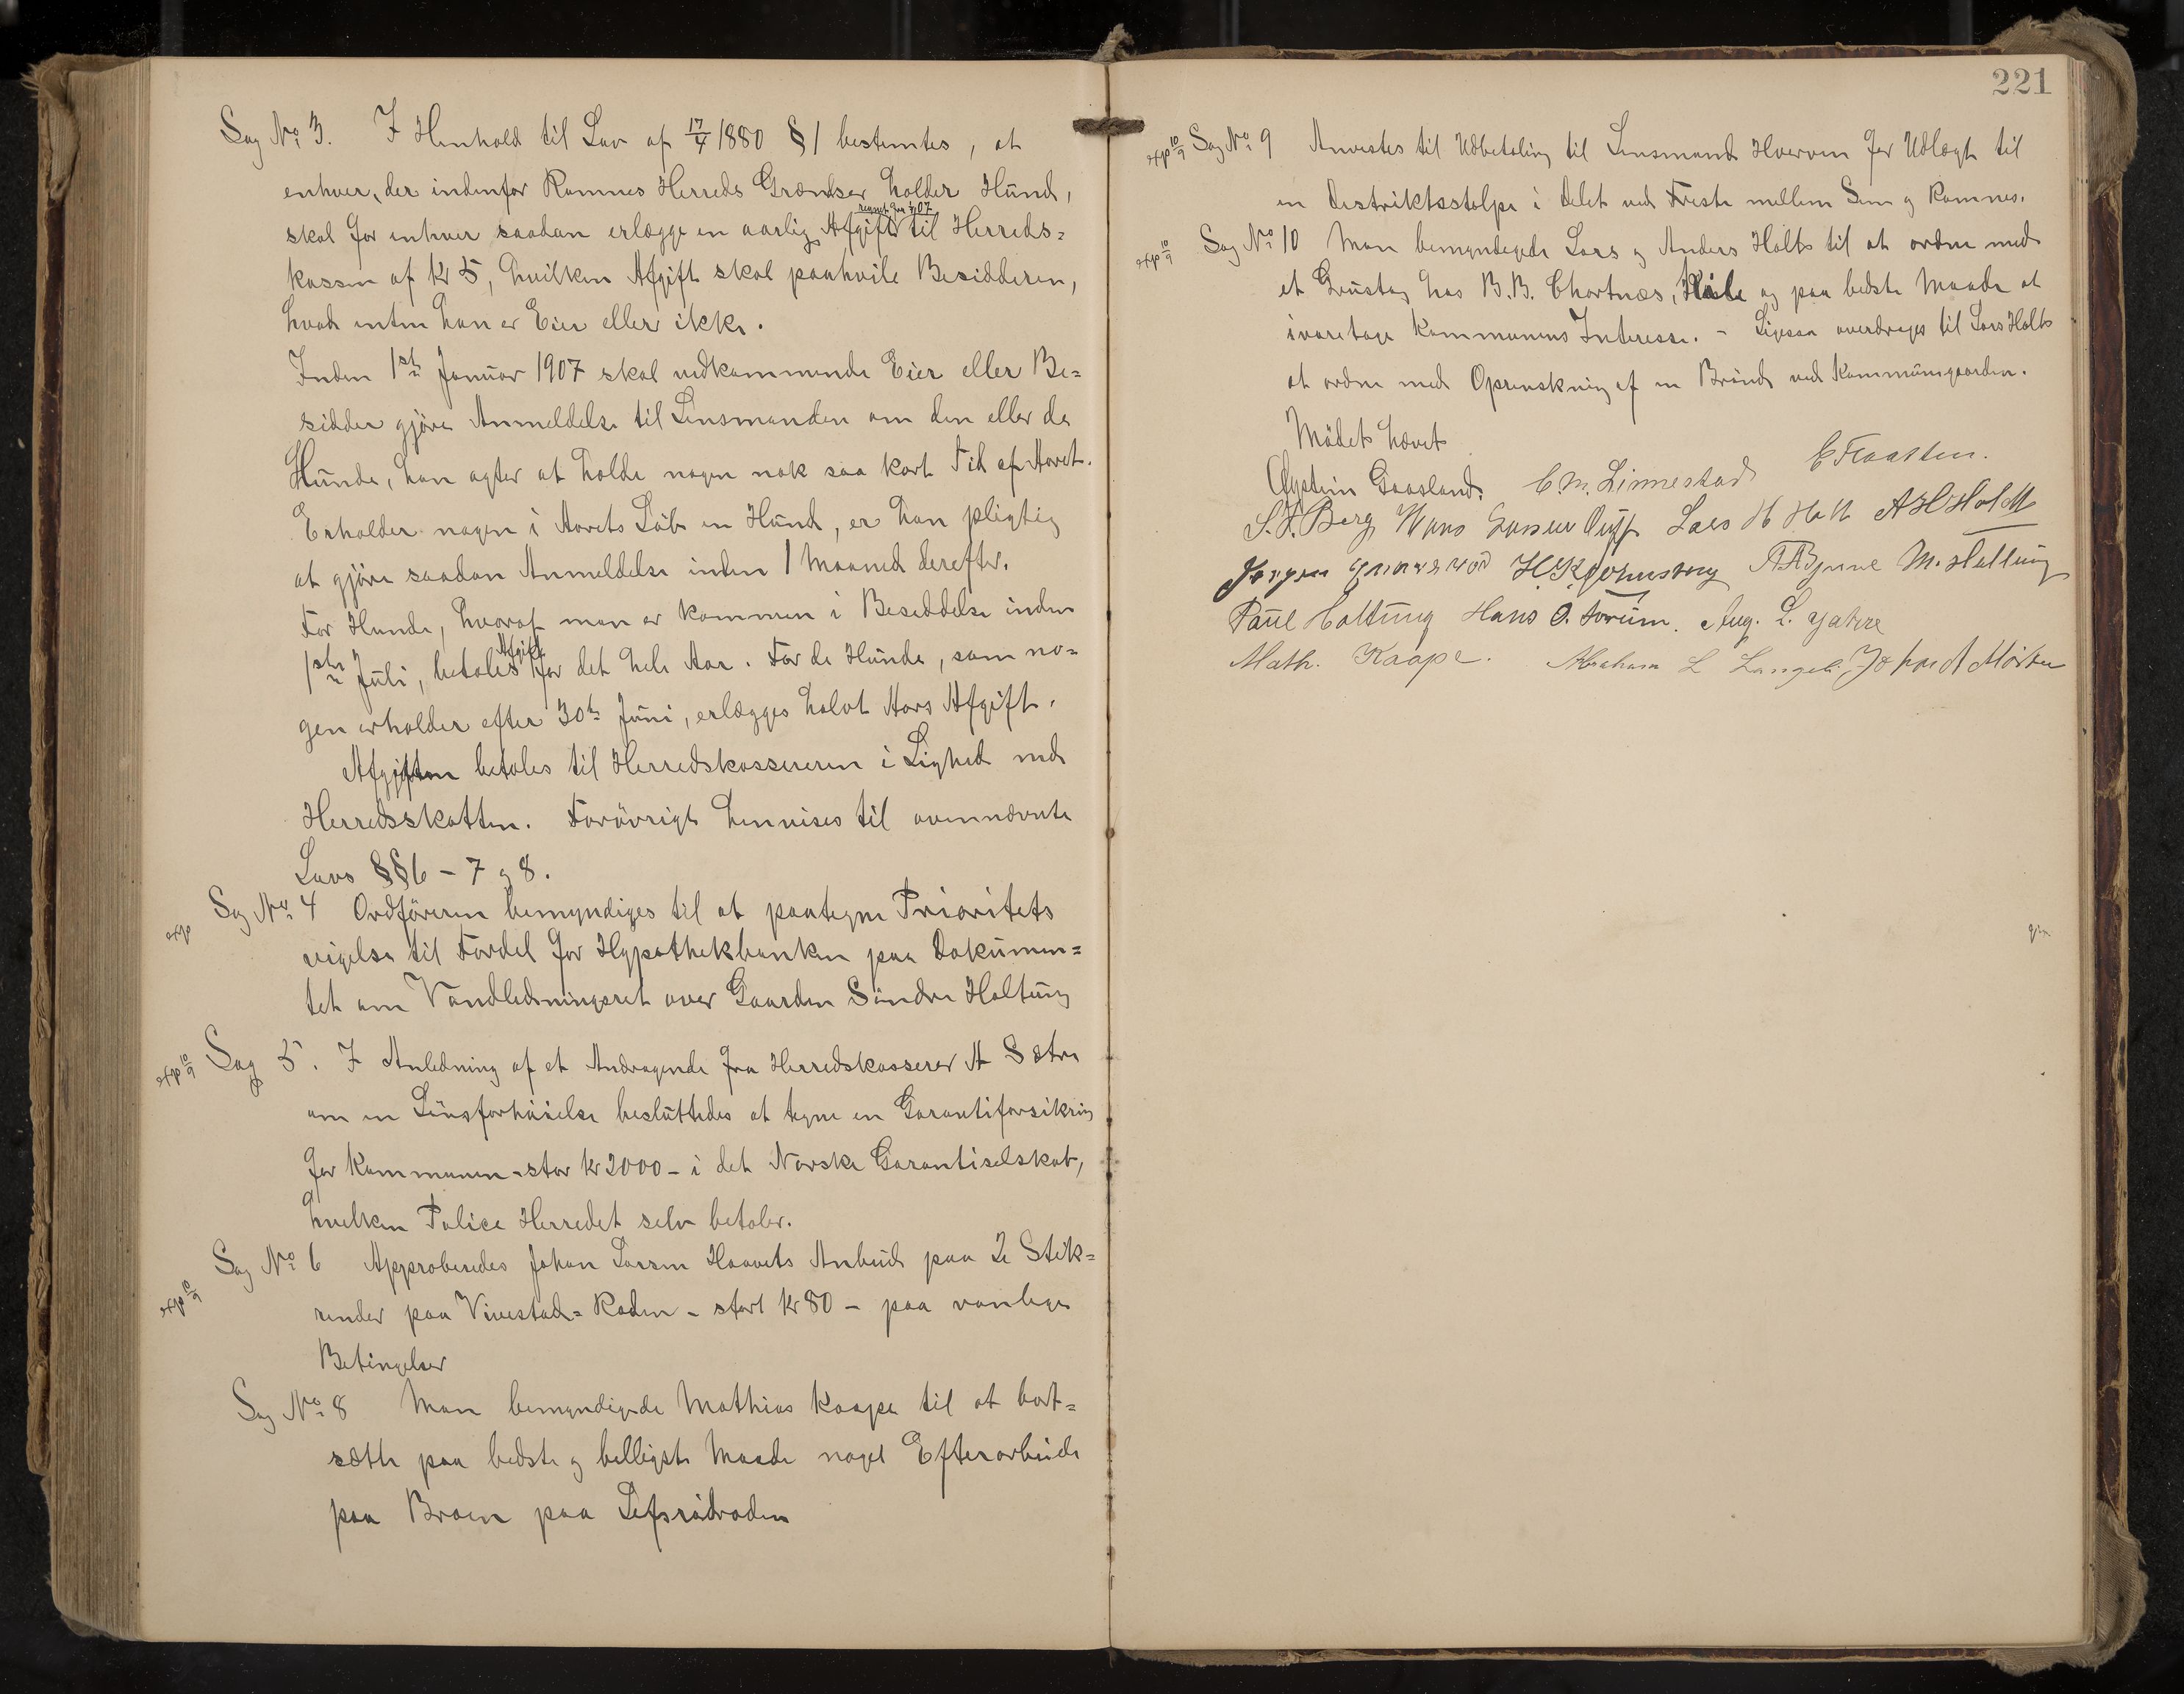 Sag No 3. I Henhold til Lov af 17/4 1880 § 1 bestemtes, at
enhver, der indenfor Ramnes Herreds Grændser holder Hund,
regnet fra 1/1 07
skal for enhver saadan erlægge en aarlig Afgift til Herreds=
kassen af Kr 5, hvilken Afgift skal paahvile Besidderen,
hvad enten han er Eier eller ikke.
Inden 1ste Januar 1907 skal vedkommende Eier eller Be=
sidder gjöre Anmeldelse til Lensmanden om den eller de
Hunde, han agter at holde nogen nok saa kort Tid af Aaret.
Erholder nogen i Aarets Löb en Hund, er han pligtig
at gjöre saadan Anmeldelse inden 1 Maaned derefter.
For Hunde, hvoraf man er kommen i Besiddelse inden
Afgift
1ste Juli, betales for det hele Aar. For de Hunde, som no=
gen erholder efter 30te Juni, erlægges halvt Aars Afgift.
Afgiften betales til Herredskassereren i Lighed med
Herredsskatten. Forövrigt henvises til ovennævnte
Lovs §§ 6 - 7 og 8.
exp Sag No 4 Ordföreren bemyndiges til at paategne Prioritets
vigelse til Fordel for Hypothekbanken paa Dokumen=
tet om Vandledningsret over Gaarden Söndre Holtung
exp 10/9 Sag 5. I Anledning af et Andragende fra Herredskasserer A Sætre
om en Lönsforhöielse besluttedes at tegne en Garantiforsikring
for Kommunen - stor kr 2000 - i det Norske Garantiselskab,
hvilken Police Herredet selv betaler.
exp 10/9 Sag No 6 Approberedes Johan Larsen Haavets Anbud paa 2 Stik=
render paa Vivestad=Roden - stort kr 80 - paa vanlige
Betingelser
Sag No 8 Man bemyndigede Mathias Kaape til at bort=
sætte paa bedste og billigste Maade noget Efterarbeide
paa Broen paa Lefsrödroden
221
exp 10/9 Sag No 9 Anvistes til Udbetaling til Lensmand Hvervén for Udlægt til
en Distriktsstolpe i Delet ved Freste mellem Sem og Ramnes.
exp 10/9 Sag No 10 Man bemyndigede Lars og Anders Holts til at ordne med
et Grustag hos B. B. Chortnæs, Kile og paa bedste Maade at
ivaretage Kommunens Interesse. - Ligesaa overdroges til Lars Holts
at ordne med Oprenskning af en Brönd ved Kommunegaarden.
Mödet hævet
Øystein Gaasland. C. M. Linnestad C Flaatten.
S. S. Berg Hans Lars H Holt A H Holdt
Jörgen H. K. Johnsberg M. Holtung
Paul Holtung Hans O. Forum. Aug. L. Jahre
Math. Kaape. Abraham L Langeb. Johan A Mörken